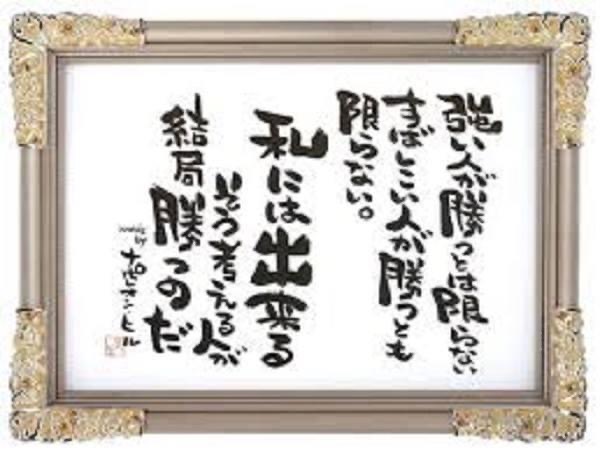 強い人が勝つとは限らない
すばしこい人が勝つとも
限らない。
私には出来る
そう考える人が
結局勝つのだ
words by ナポレオン・ヒル